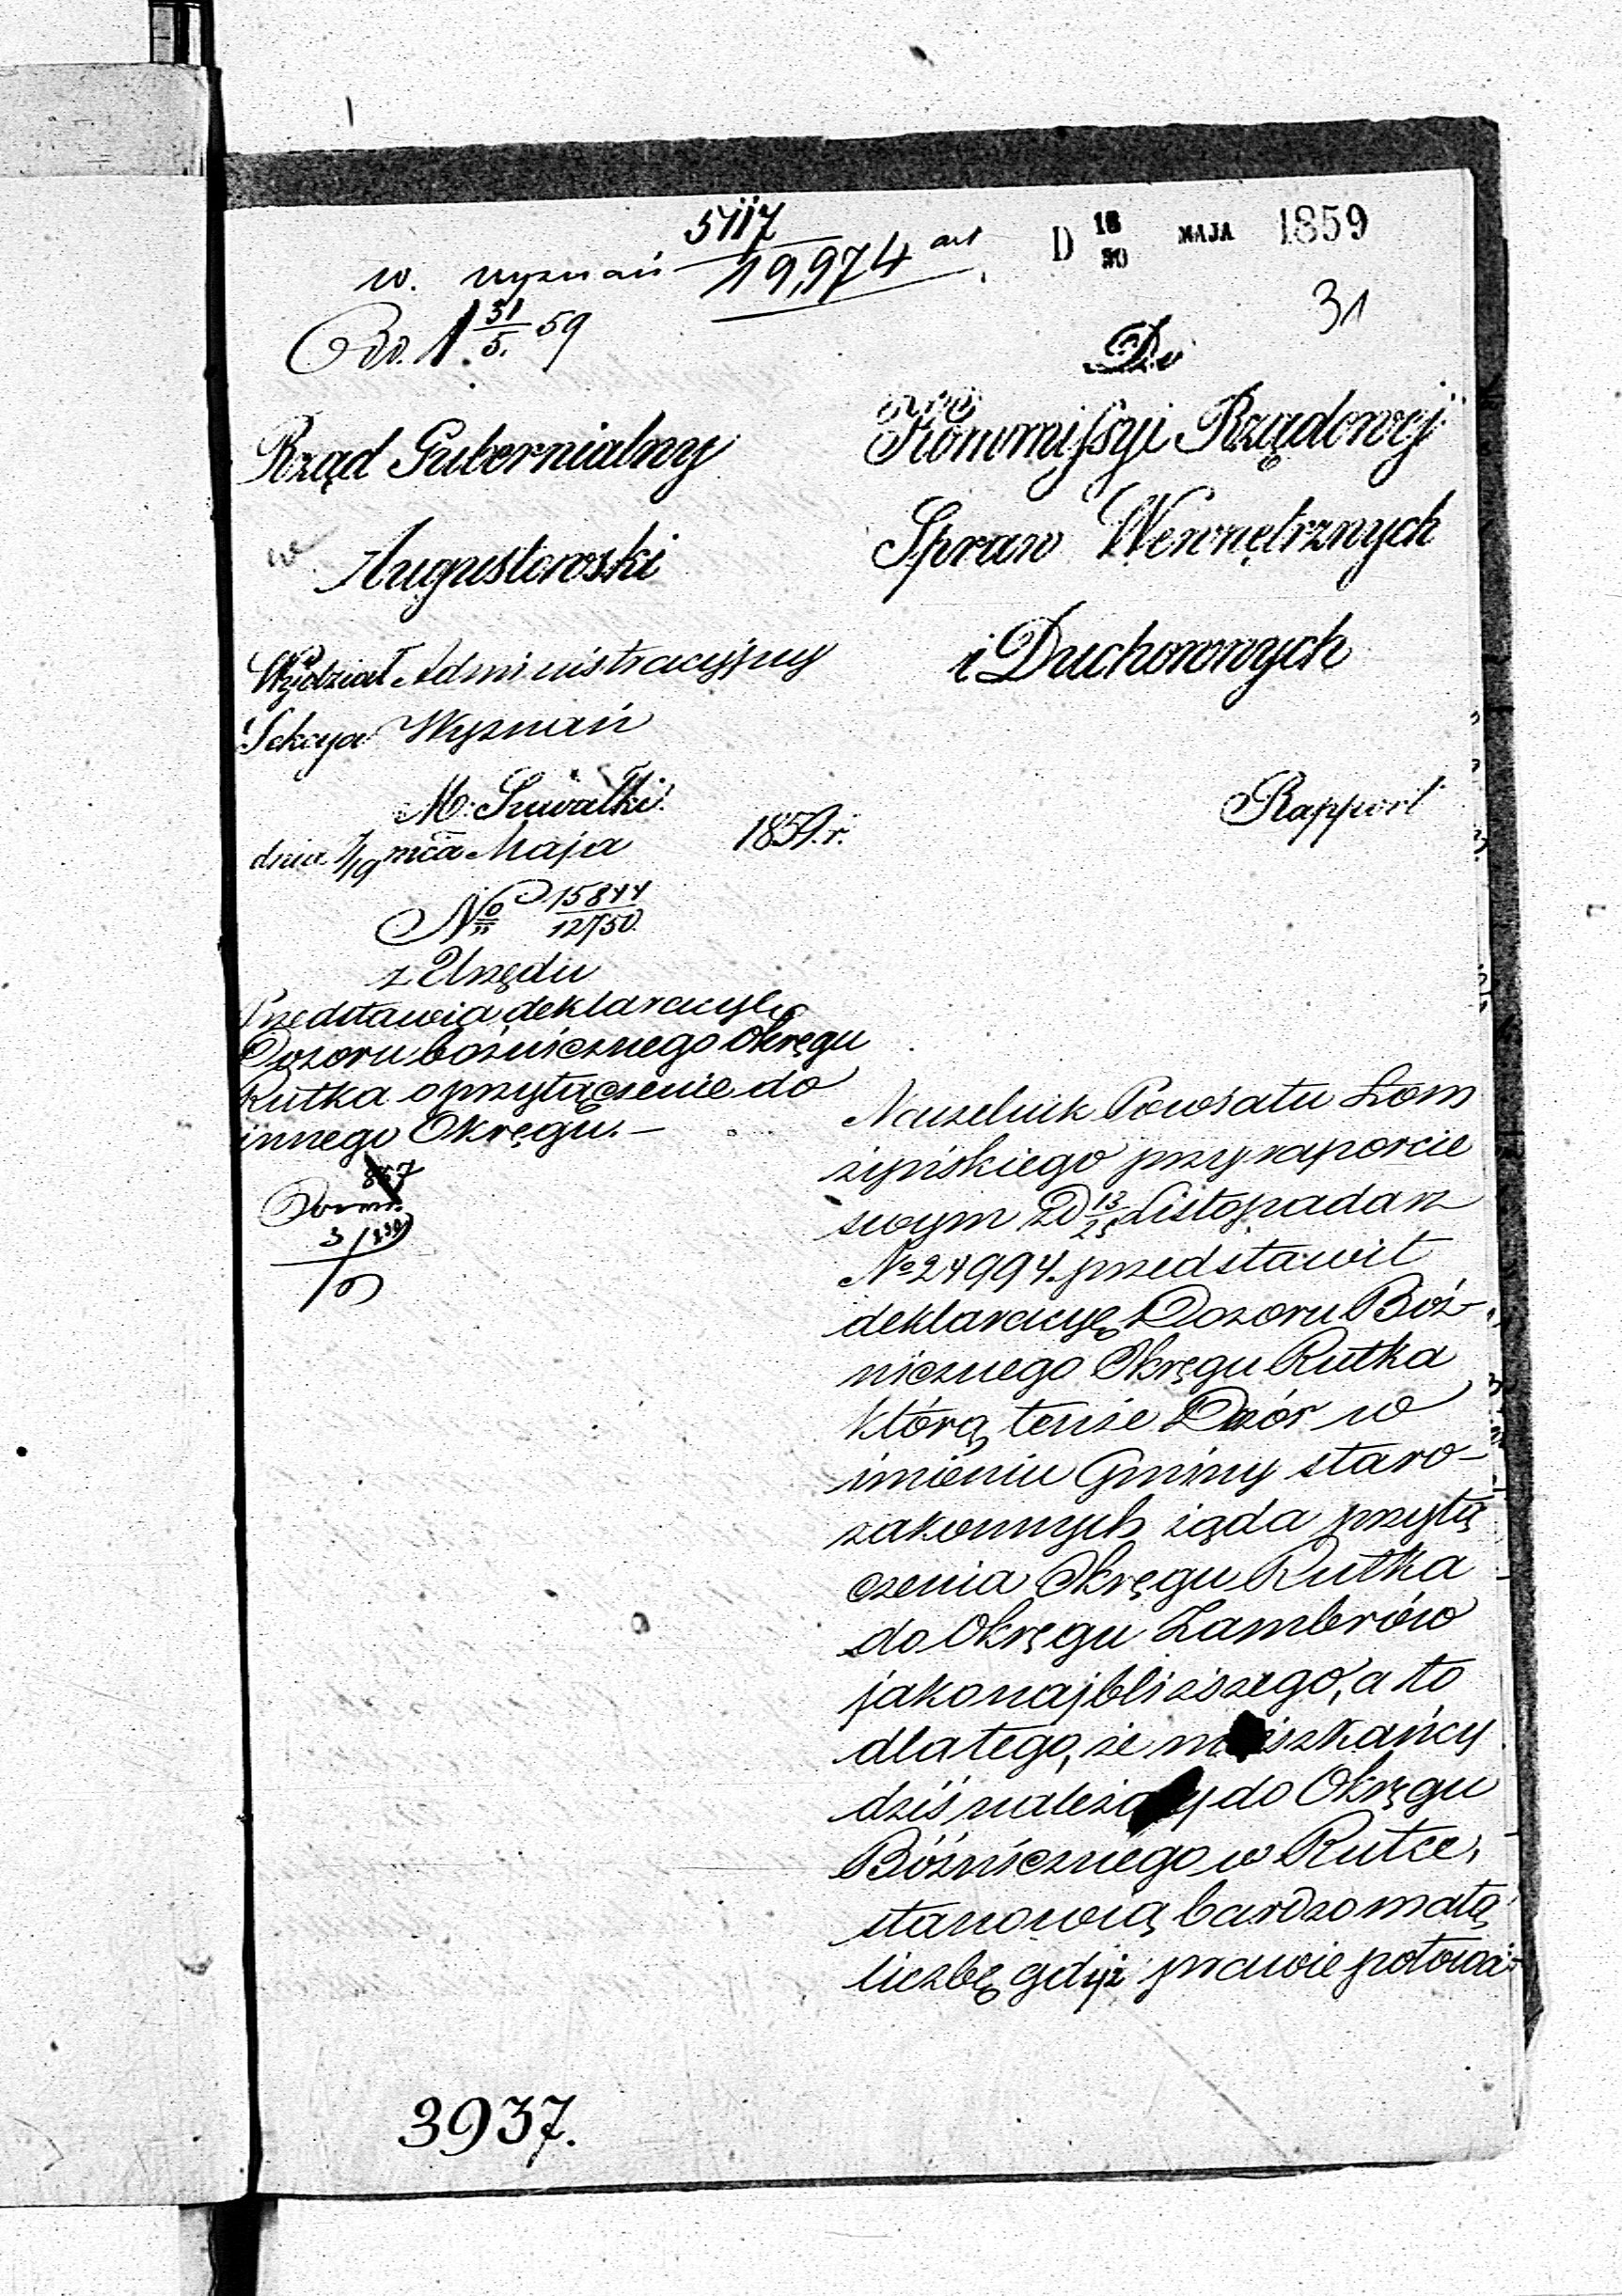 5117
w. wyznań 19,974
D 18/30 MAJA 1859
31
31/5. 59
Rząd Gubernialny
Augustowski
Wydział Administracyjny
Sekcya Wyznań
M. Suwałki
dnia 7/19 mca Maja 1859. r.
No 15844/12750.
z Urzędu
Przedstawia deklaracyę
Dozoru bóżnicznego Okręgu
Rutka o przyłączenie do
innego Okręgu. —
Do
Kommissyi Rządowej
Spraw Wewnętrznych
i Duchownych
Rapport
Naczelnik Powiatu Łom
żyńskiego przy raporcie
swym z D 13/25 Listopada rz
No 24994. przedstawił
deklaracyę Dozoru Boż-
nicznego Okręgu Rutka
którą tenże Dozór w
imieniu Gminy staro-
zakonnych żąda przyłą
czenia Okręgu Rutka
do Okręgu Zambrów
jako najbliższego, a to
dla tego, że mieszkańcy
dziś należący do Okręgu
Bóżnicznego w Rutce,
stanowią bardzo małą
liczbę gdyż prawie połowa
3937.